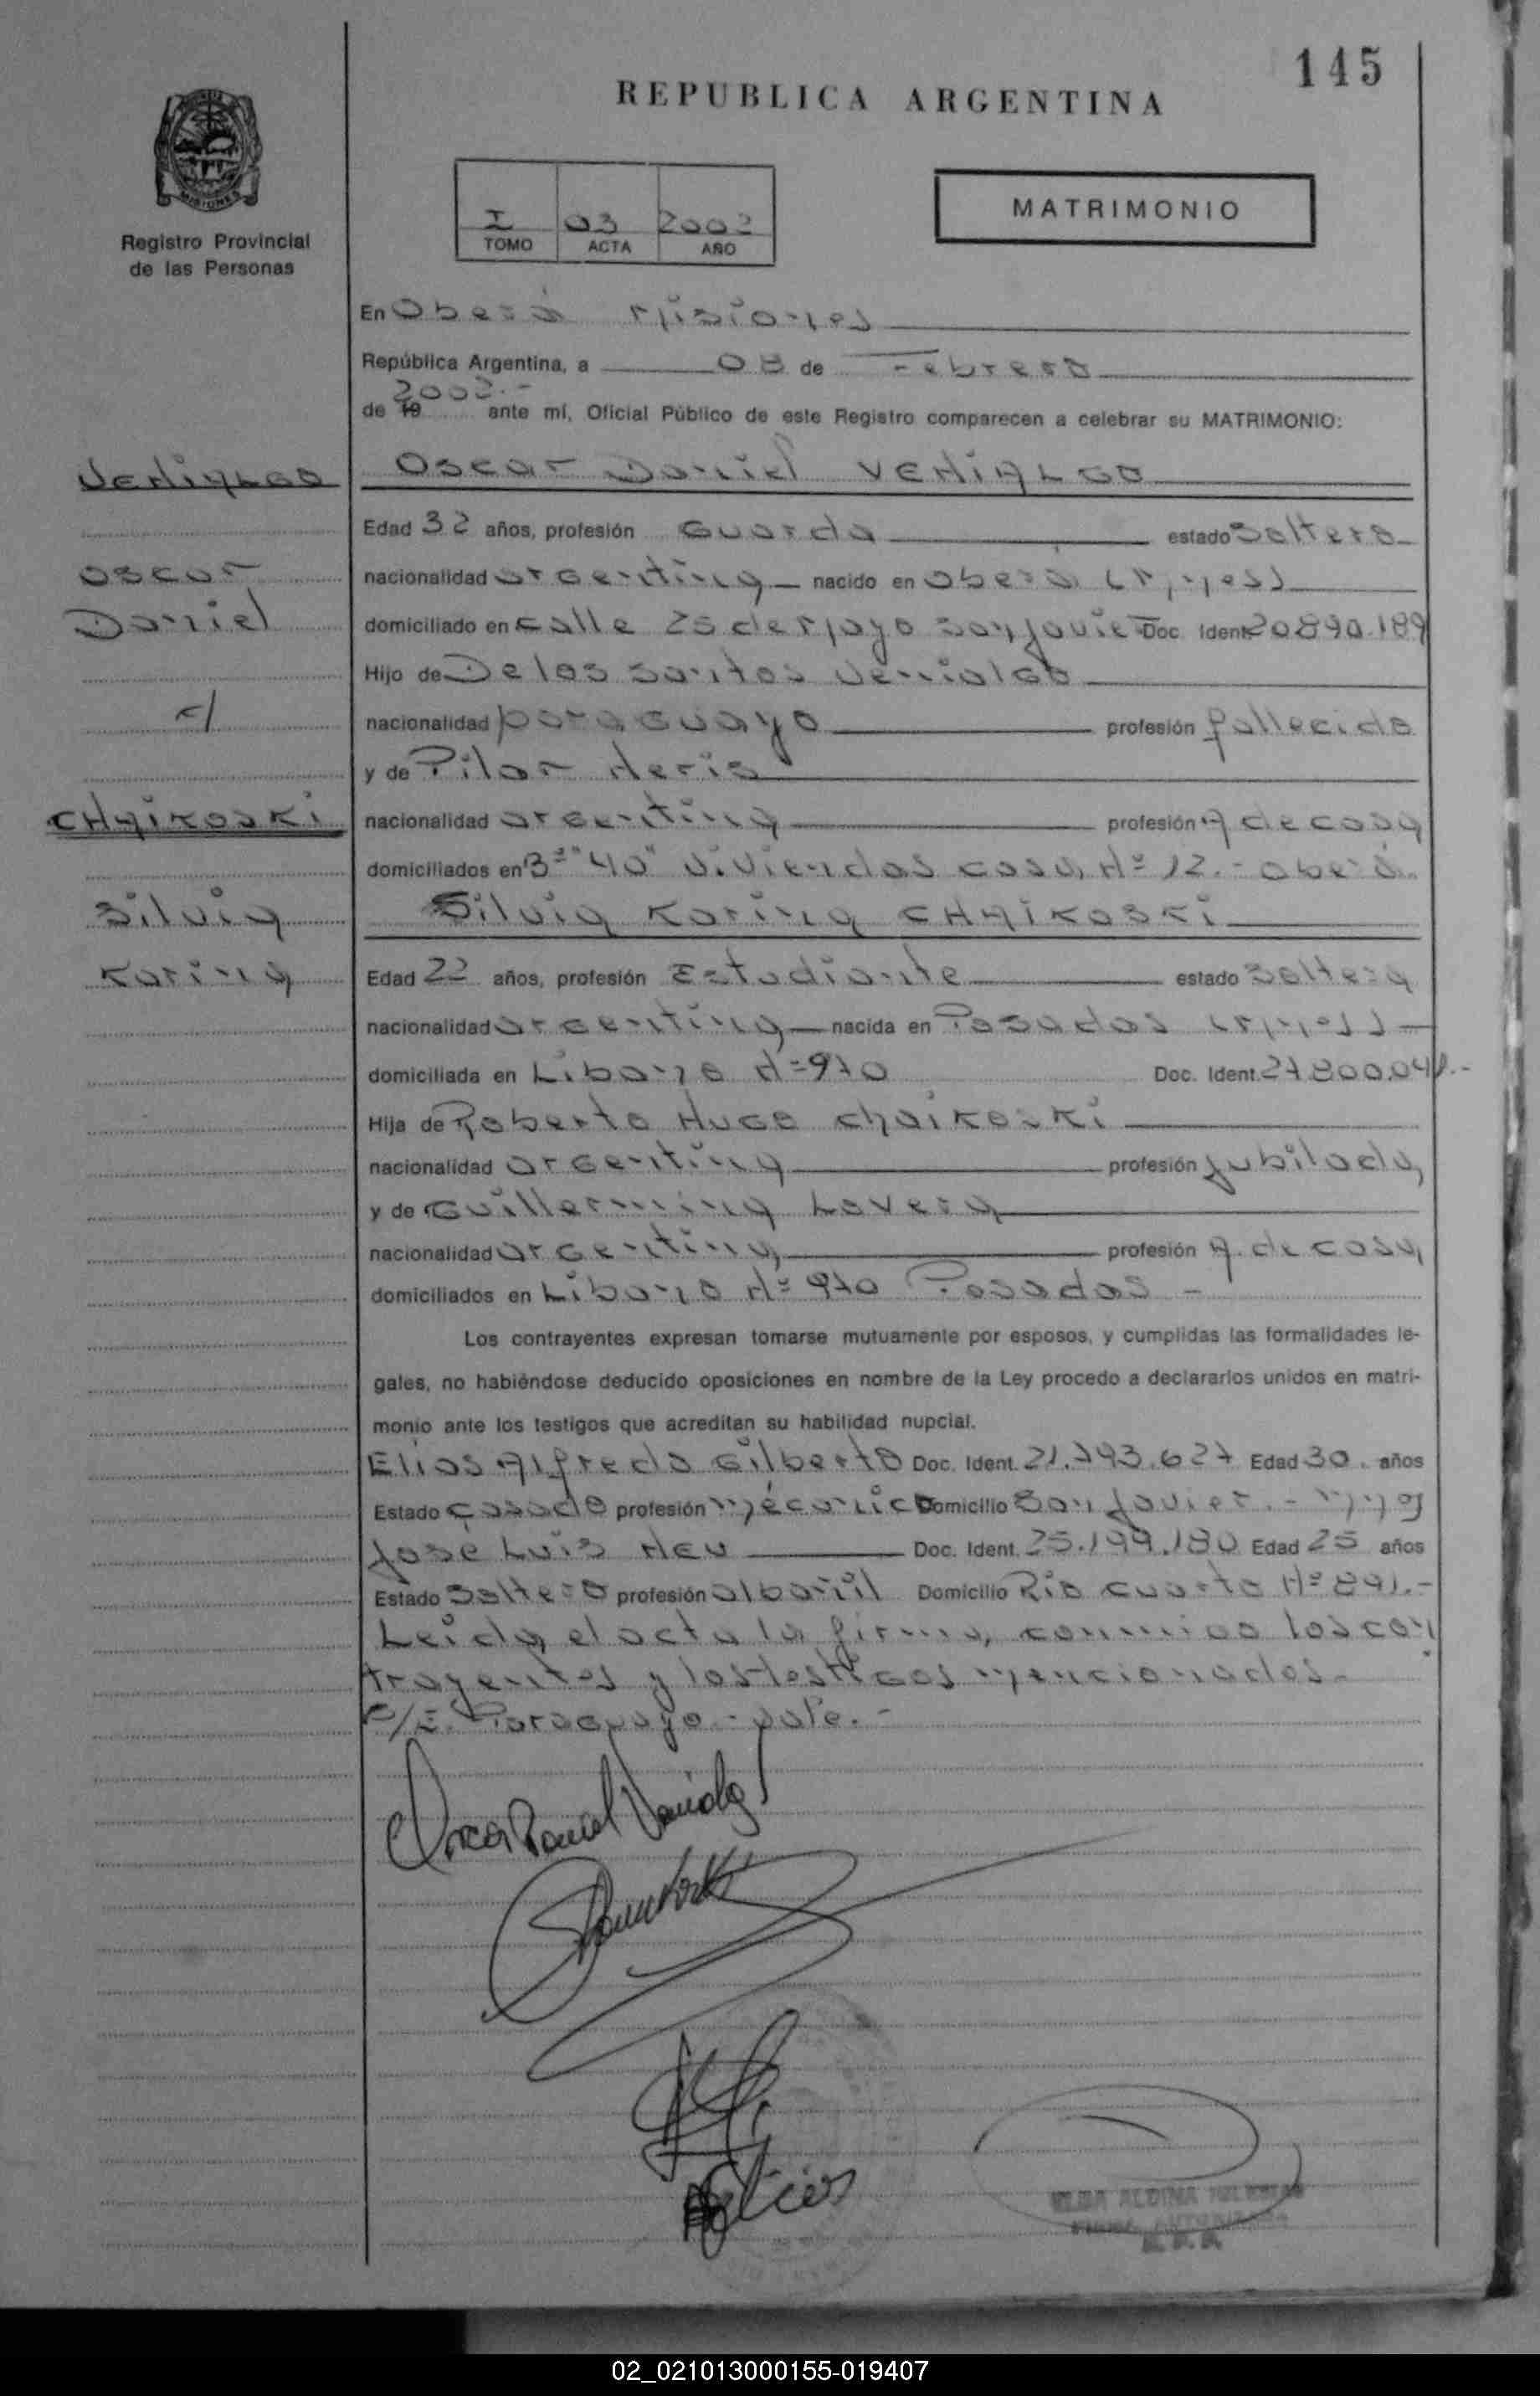 145
REPUBLICA ARGENTINA
MISIONES
Registro Provincial
de las Personas
I 03 2002
TOMO ACTA AÑO
MATRIMONIO
En Oberá Misiones
República Argentina, a 08 de Febrero
de 19 2002.- ante mí, Oficial Público de este Registro comparecen a celebrar su MATRIMONIO:
VENIALGO
Oscar Daniel VENIALGO
Edad 32 años, profesión Guarda estado Soltero
Oscar
nacionalidad argentina nacido en Oberá (Mnes)
Daniel
domiciliado en calle 25 de Mayo San Javier Doc. Ident. 20890.189
Hijo de De los Santos Venialgo
c/
nacionalidad paraguayo profesión fallecido
y de Pilar Neris
CHAIKOSKI
nacionalidad argentina profesión A de casa
domiciliados en Bº "40" viviendas casa Nº 12.- Oberá.
Silvia
Silvia Karina CHAIKOSKI
Karina
Edad 22 años, profesión Estudiante estado Soltera
nacionalidad argentina nacida en Posadas (Mnes)
domiciliada en Libano Nº 970 Doc. Ident. 27.800.041.-
Hija de Roberto Hugo Chaikoski
nacionalidad argentina profesión jubilado
y de Guillermina Lovera
nacionalidad argentina profesión A. de casa
domiciliados en Libano Nº 970 Posadas -
Los contrayentes expresan tomarse mutuamente por esposos, y cumplidas las formalidades le-
gales, no habiéndose deducido oposiciones en nombre de la Ley procedo a declararlos unidos en matri-
monio ante los testigos que acreditan su habilidad nupcial.
Elias Alfredo Gilberto Doc. Ident. 21.793.627 Edad 30. años
Estado casado profesión mecánico Domicilio San Javier.- Mnes
Jose Luis Neu Doc. Ident. 25.199.180 Edad 25 años
Estado Soltero profesión albañil Domicilio Rio cuarto Nº 891.-
Leida el acta la firma, conmigo los con
trayentes y los testigos mencionados.-
E/E. Paraguayo - vale.-
Oscar Daniel Venialgo
ELBA ALDINA IGLESIAS
FIRMA AUTORIZADA
R. P. P.
02_021013000155-019407